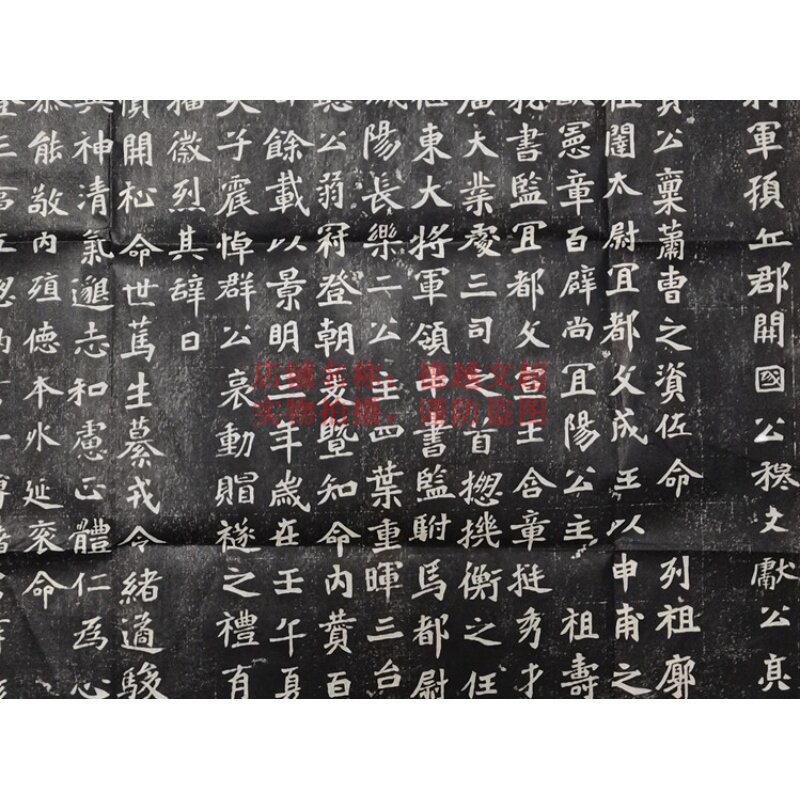 軍頊丘郡開國公穆文獻公亮
公稟蕭曹之資佐命 列祖廓
祖闥太尉宜都文成王以申甫之
憲章百辟尚宜陽公主 祖壽
秘書監宜都文宣王含章挺秀才
廣大業處三司之首摠機衡之任
征東大將軍領中書監駙馬都尉
城陽長樂二公主四葉重暉三台
公弱冠登朝爰暨知命內贊百
餘載以景明三年歲在壬午夏
天子震悼群公哀動賵襚之禮有
播徽烈其辭曰
開松命世篤生纂戎令緒適駿
神清氣邈志和慮正體仁為心
恭能敬內殖德本水延衮命
店铺名称：墨越文阁
实物拍摄，谨防盗图